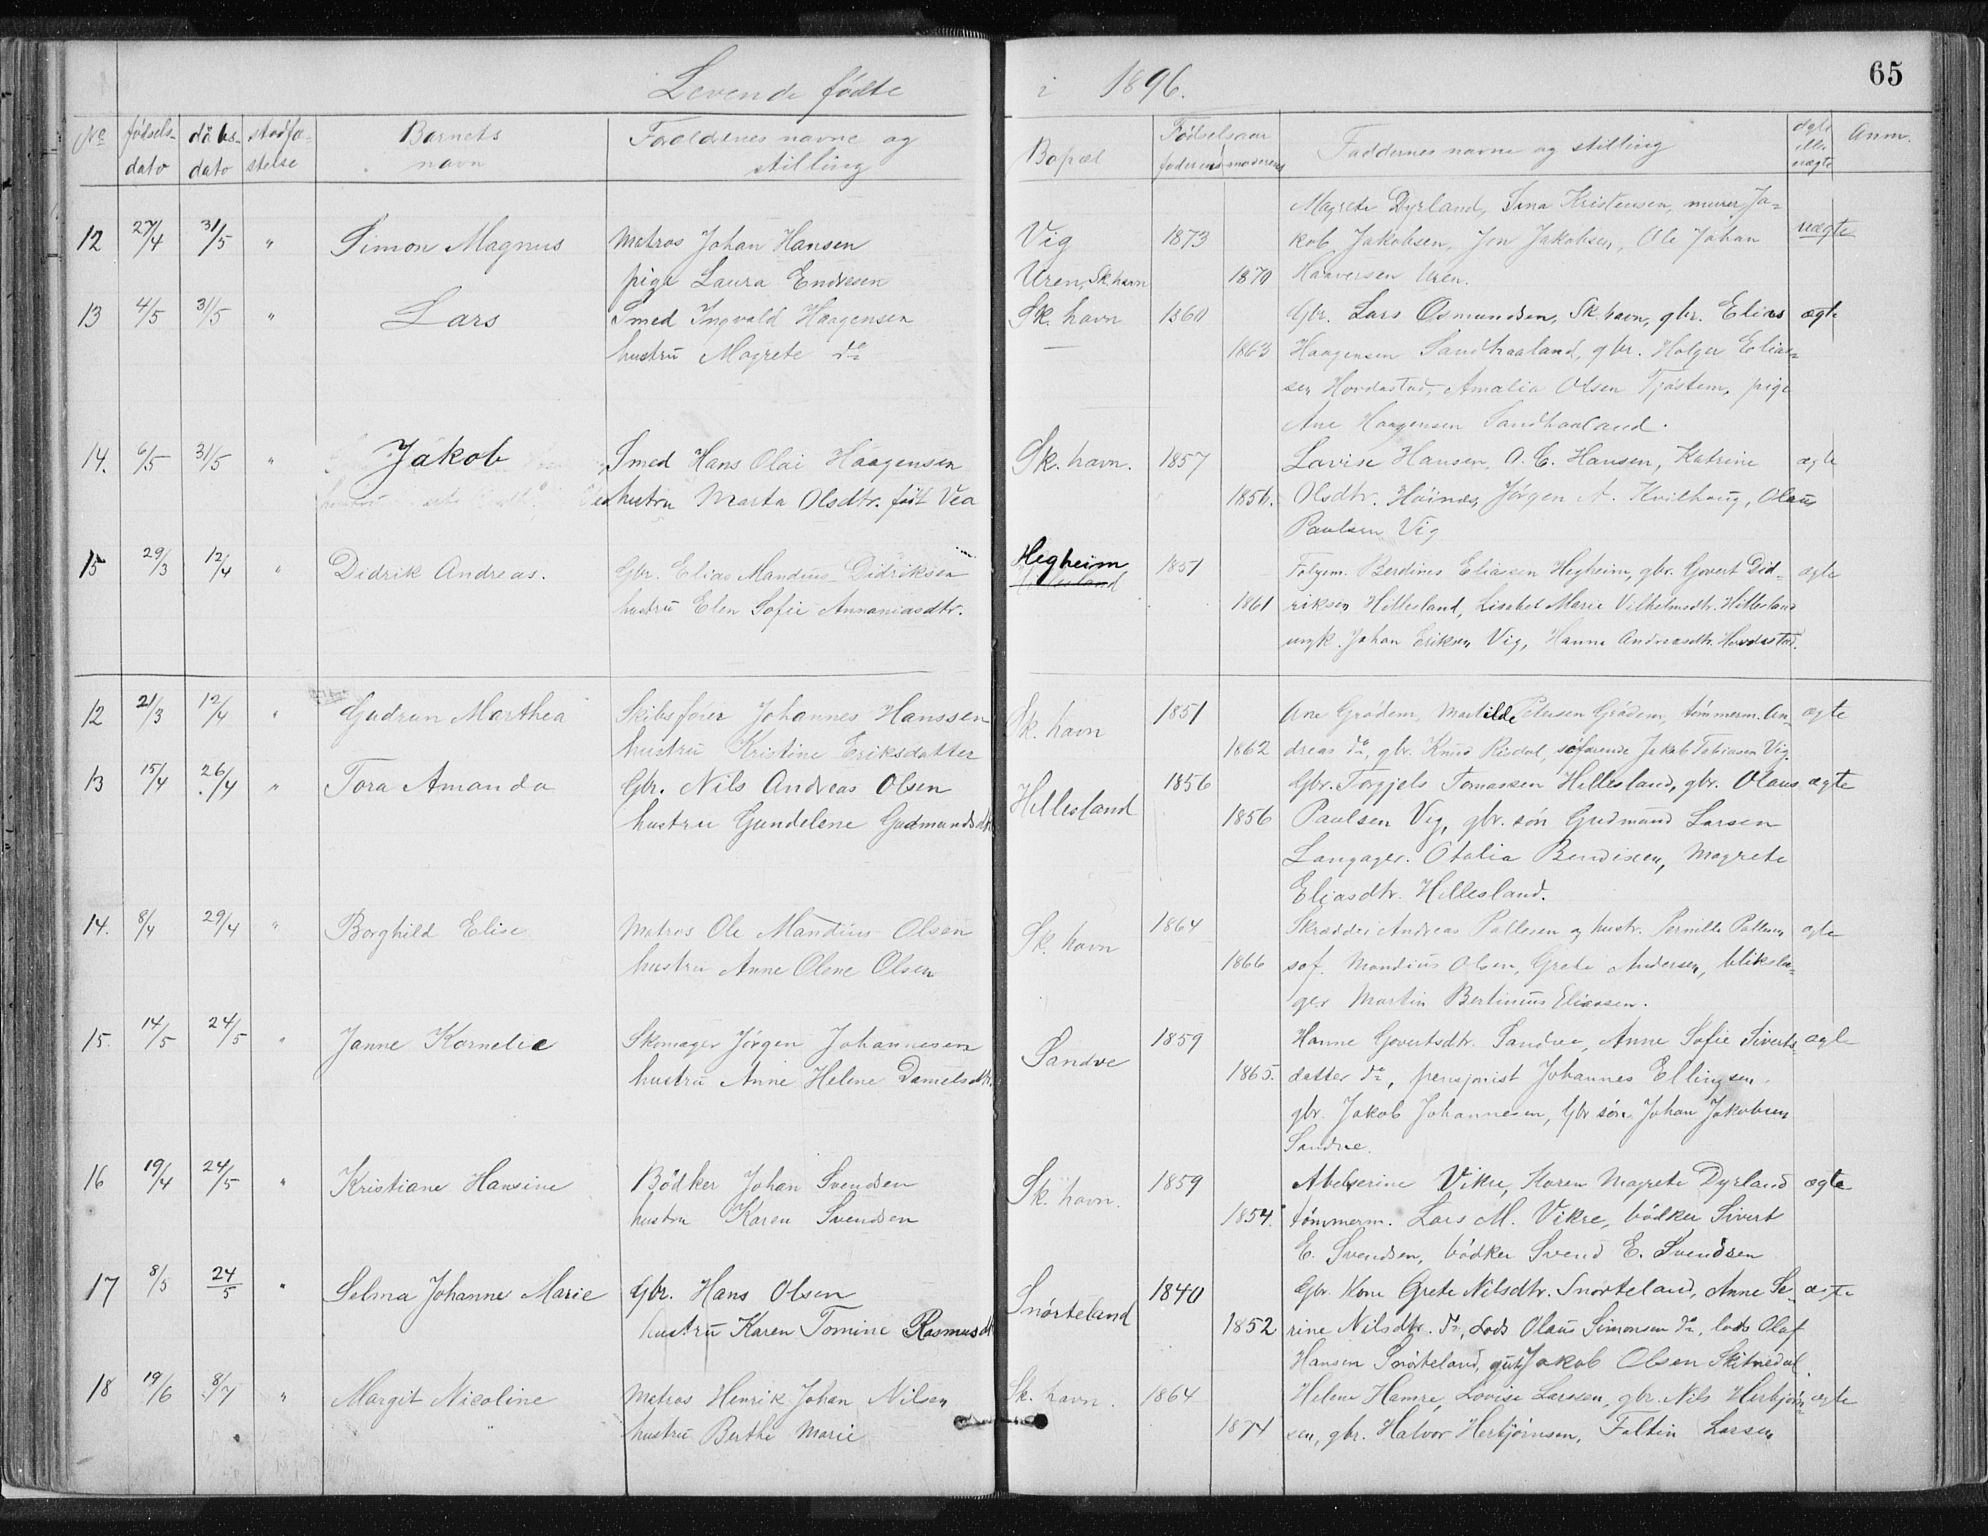 Levende fødte i 1896.
65
No fødsels- dåbs- stadfæ- Barnets Forældrenes navne og Bopæl Fødselsaar Faddernes navne og stilling ægte Anm.
dato dato stelse navn stilling faderens moderens eller uægte
Magrete Dyrland, Sina Kristensen, murer Ja-
12 27/4 31/5 " Simon Magnus Matros Johan Hansen Vig 1873 kob Jakobsen, Jon Jakobsen, Ole Johan uægte
pige Laura Endresen Uren, Sk. havn 1870 Haaversen Uren.
13 4/5 31/5 " Lars Smed Ingvald Haagensen Sk. havn 1860 Gbr. Lars Osmundsen, Sk. havn, gbr. Elias ægte
hustru Magrete do 1863 Haagensen Sandhaaland, gbr. Holger Elias-
sen Hovdastad, Amalia Olsen Tjøstem, pige
Ane Haagensen Sandhaaland.
14. 6/5 31/5 " Jakob Smed Hans Olai Haagensen Sk. havn. 1857 Lovise Hansen, A. C. Hansen, Katrine ægte
hustru Marta Olsdtr. født Vea 1856. Olsdtr. Høines, Jørgen A. Kvilhaug, Olaus
Paulsen Vig
15 29/3 12/4 " Didrik Andreas. Gbr. Elias Mandius Didriksen Hegheim 1851 Følgem. Berdines Eliassen Hegheim, gbr. Govert Did- ægte
hustru Elen Sofie Annaniasdtr. 1861 riksen Hillesland, Lisabet Marie Vilhelmsdtr. Hillesland
ungk. Johan Eriksen Vig, Hanna Andreasdtr. Hovdastad.
12 21/3 12/4 " Gudrun Marthea Skibsfører Johannes Hanssen Sk. havn 1851 Ane Grødem, Martilde Petersen Grødem, tømmerm. An- ægte
hustru Kristine Eriksdatter 1862 dreas do, gbr. Knud Risdal, søfarende Jakob Tobiasen Vig.
13 15/4 26/4 " Tora Amanda Gbr. Nils Andreas Olsen Hillesland 1856 Gbr. Torgjels Tomassen Hillesland, gbr. Olaus ægte
hustru Gundelene Gudmundsdtr 1856 Paulsen Vig, gbr. søn Gudmund Larsen
Langager. Otalia Bendixen, Magrete
Eliasdtr. Hillesland.
14. 8/4 29/4 " Borghild Elise Matros Ole Mandius Olsen Sk. havn 1864 Skrædder Andreas Pallesen og hustr. Pernille Pallesen ægte
hustru Anne Olene Olsen 1866 søf. Mandius Olsen, Grete Andersen, bliksla-
ger Martin Bertinius Eliassen.
15. 14/5 24/5 " Janne Kornelie Skomager Jørgen Johannesen Sandve 1859 Hanne Govertsdtr. Sandve, Anne Sofie Siverts- ægte
hustru Anne Helene Danielsdtr. 1865. datter do, pensjonist Johannes Ellingsen.
gbr. Jakob Johannesen, Gbr søn Johan Jakobsen
Sandve.
16 19/4 24/5 " Kristiane Hansine Bødker Johan Svendsen Sk. havn. 1859 Abelserine Vikre, Karen Magrete Dyrland ægte
hustru Karen Svendsen 1854. tømmerm. Lars M. Vikre, bødker Sivert
E. Svendsen, bødker Svend E. Svendsen
17 8/5 24/5 " Selma Johanne Marie Gbr. Hans Olsen Snørteland 1840 Gbr. Kone Grete Nilsdtr. Snørteland, Anne Se- ægte
hustru Karen Tomine Rasmusdt 1852 rine Nilsdtr. do, Lods Olaus Simonsen do, lods Olaf
Hansen Snørteland, gut Jakob Olsen Skitnedal.
18 19/6 8/7 " Margit Nicoline Matros Henrik Johan Nilsen Sk. havn. 1864 Helene Hamre, Lovise Larssen, gbr. Nils Herbjørn- ægte
hustru Berthe Marie 1874 sen, gbr. Halvor Herbjørnsen, Faltin Larsen